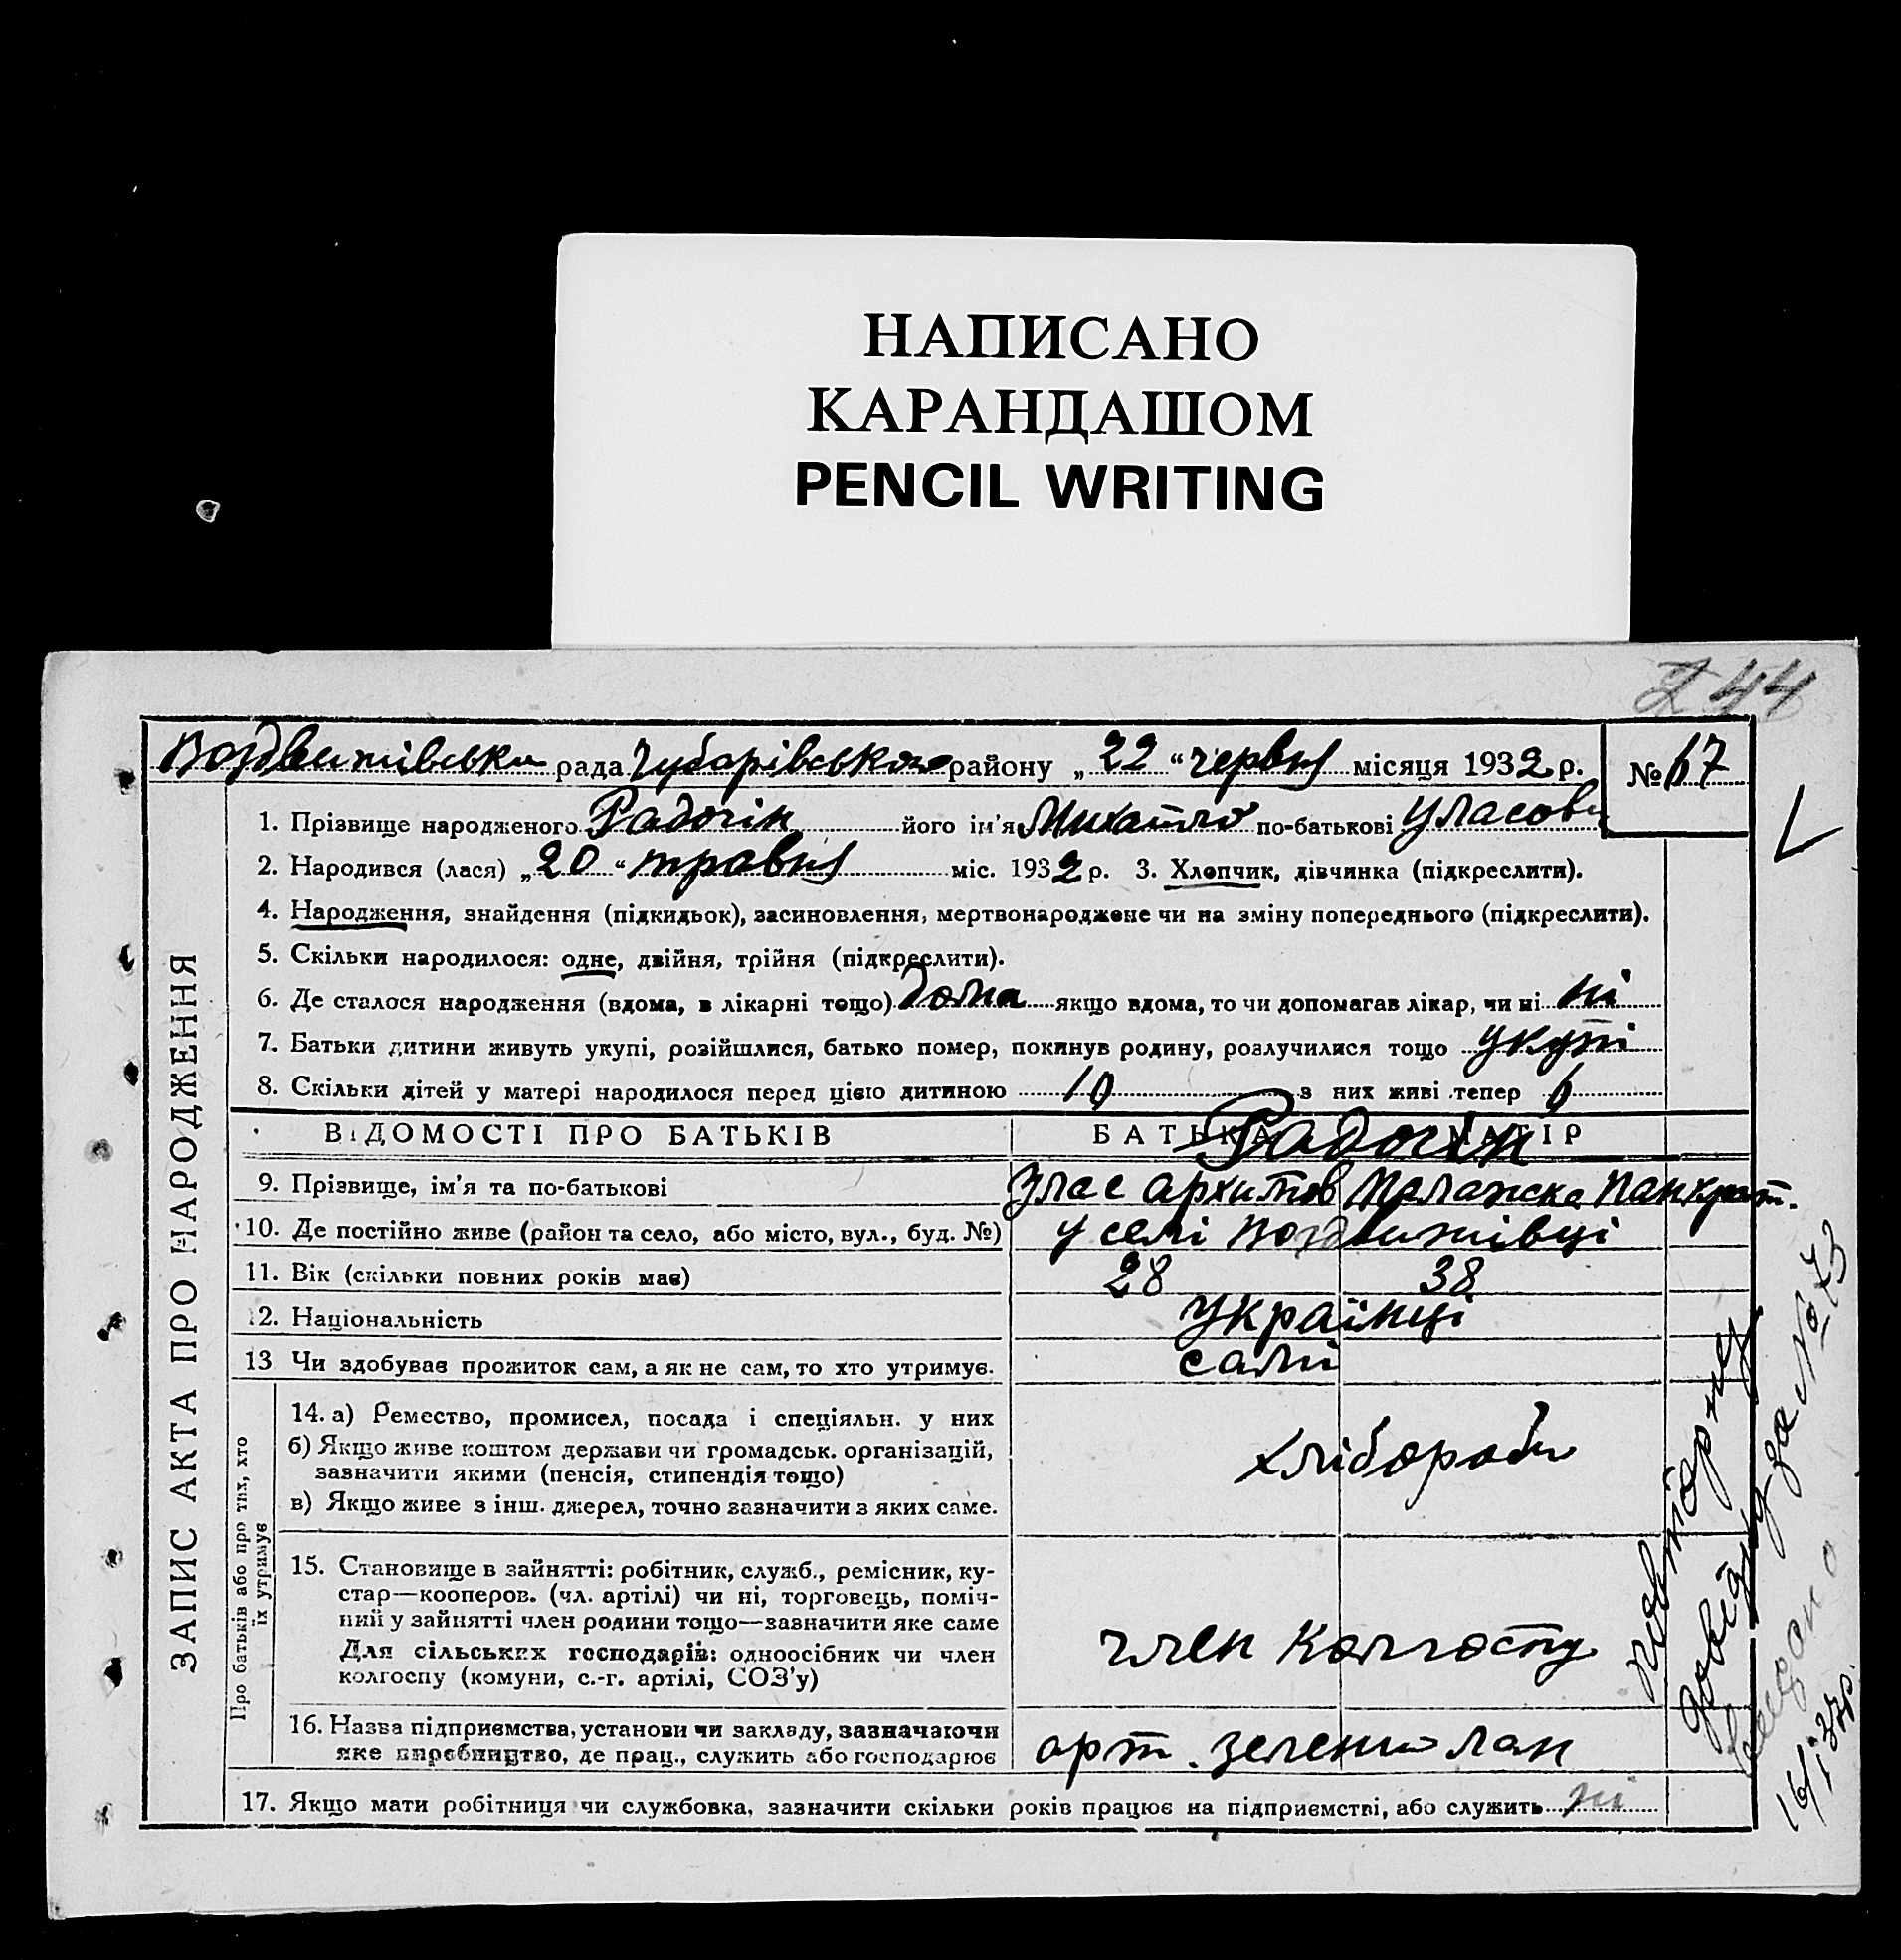 НАПИСАНО
КАРАНДАШОМ
PENCIL WRITING
44
Воздвижівська рада Чубарівського району „22“ червня місяця 1932 р. № 67
ЗАПИС АКТА ПРО НАРОДЖЕННЯ
1. Прізвище народженого Радочін його ім'я Михайло по-батькові Уласови
2. Народився (лася) „20“ травня міс. 1932 р. 3. Хлопчик, дівчинка (підкреслити).
4. Народження, знайдення (підкидьок), засиновлення, мертвонароджене чи на зміну попереднього (підкреслити).
5. Скільки народилося: одне, двійня, трійня (підкреслити).
6. Де сталося народження (вдома, в лікарні тощо) дома якщо вдома, то чи допомагав лікар, чи ні ні
7. Батьки дитини живуть укупі, розійшлися, батько помер, покинув родину, розлучилися тощо укупі
8. Скільки дітей у матері народилося перед цією дитиною 10 з них живі тепер 6
ВІДОМОСТІ ПРО БАТЬКІВ БАТЬКА МАТІР
Радочін
9. Прізвище, ім'я та по-батькові Улас Архипов Палажка Панкрат.
10. Де постійно живе (район та село, або місто, вул., буд. №) у селі Воздвижівці
11. Вік (скільки повних років має) 28 38
12. Національність Українці
13 Чи здобував прожиток сам, а як не сам, то хто утримує. самі
Про батьків або про тих, хто
їх утримує
14. а) Ремество, промисел, посада і спеціяльн. у них
б) Якщо живе коштом держави чи громадськ. організацій,
зазначити якими (пенсія, стипендія тощо)
в) Якщо живе з інш. джерел, точно зазначити з яких саме.
хлібороби
15. Становище в зайнятті: робітник, служб., ремісник, ку-
стар—кооперов. (чл. артілі) чи ні, торговець, поміч-
ний у зайнятті член родини тощо—зазначити яке саме
Для сільських господарів: одноосібник чи член
колгоспу (комуни, с.-г. артілі, СОЗ'у)
член колгоспу
16. Назва підприємства, установи чи закладу, зазначаючи
яке виробництво, де прац., служить або господарює
арт. зелений лан
17. Якщо мати робітниця чи службовка, зазначити скільки років працює на підприємстві, або служить ні
повторну
довідку за № 73
видано